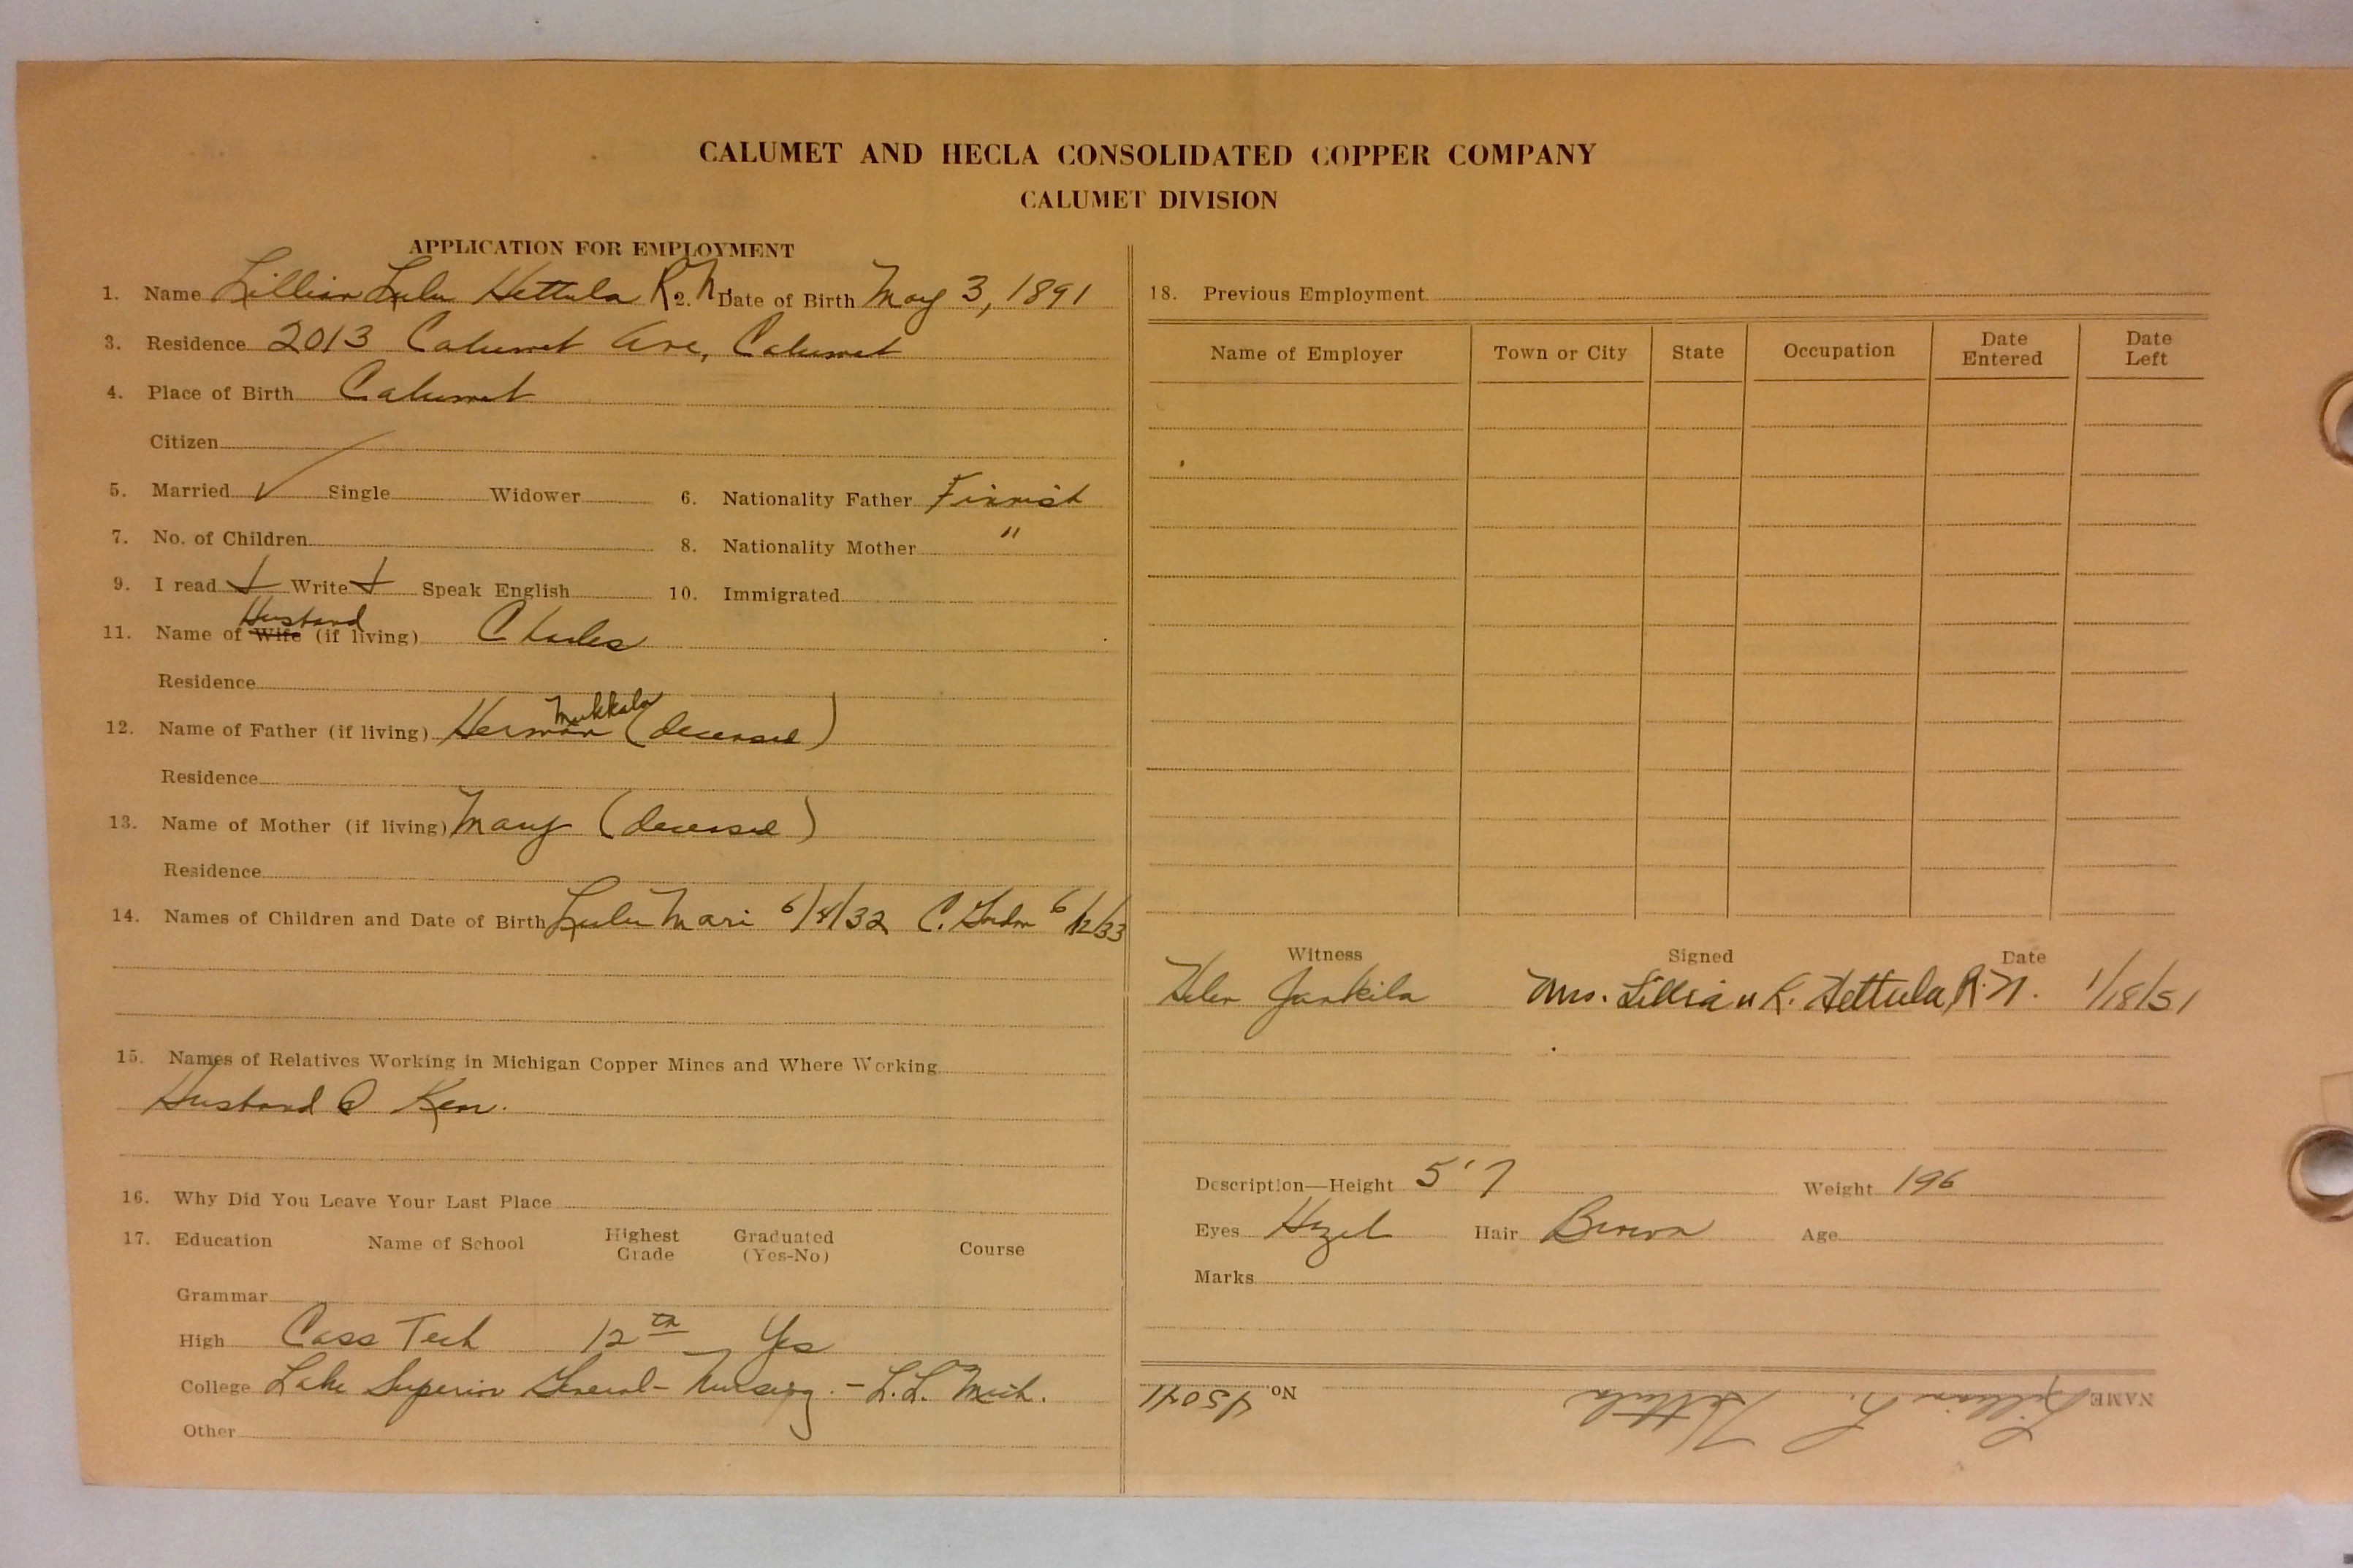 CALUMET AND HECLA CONSOLIDATED COPPER COMPANY
CALUMET DIVISION
APPLICATION FOR EMPLOYMENT
1. Name Lillian Lulu Hettula R.N. 2. Date of Birth May 3, 1891
3. Residence 2013 Calumet Ave, Calumet
4. Place of Birth Calumet
Citizen
5. Married ✓ Single Widower 6. Nationality Father Finnish
7. No. of Children 8. Nationality Mother "
9. I read ✓ Write ✓ Speak English 10. Immigrated
Husband
11. Name of Wife (if living) Charles
Residence
Mukkala
12. Name of Father (if living) Herman (deceased)
Residence
13. Name of Mother (if living) Mary (deceased)
Residence
14. Names of Children and Date of Birth Lulu Mari 6/4/32 C. Gordon 6/12/33
15. Names of Relatives Working in Michigan Copper Mines and Where Working
Husband @ Kear.
16. Why Did You Leave Your Last Place
17. Education Name of School Highest Grade Graduated (Yes-No) Course
Grammar
High Cass Tech 12th Yes
College Lake Superior General - Nursing. - L.L. Mich.
Other
18. Previous Employment
Name of Employer Town or City State Occupation Date Entered Date Left
Witness Signed Date
Helen Jankila Mrs. Lillian L. Hettula, R.N. 1/18/51
Description—Height 5'7 Weight 196
Eyes Hazel Hair Brown Age
Marks
NAME Lillian L. Hettula No. 45041